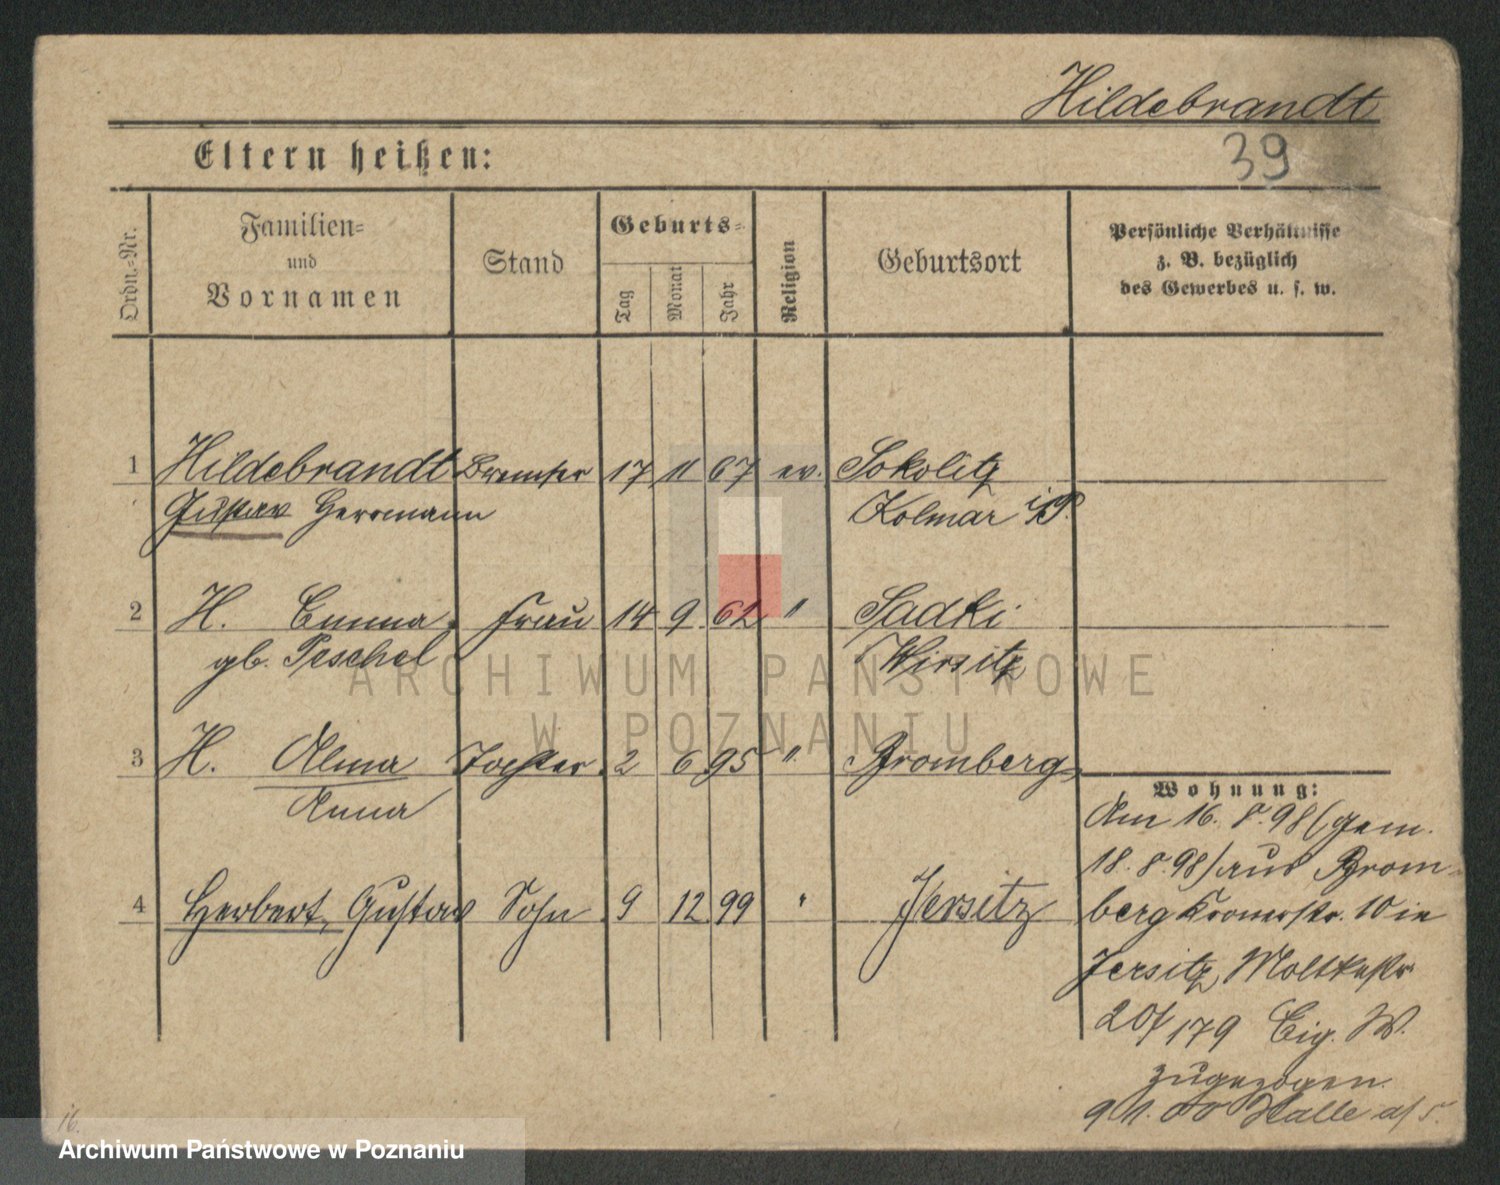 Hildebrandt
39
Eltern heißen:
Ordn.-Nr.
Familien-
und
Vornamen
Stand
Geburts-
Tag
Monat
Jahr
Religion
Geburtsort
Persönliche Verhältnisse
z. B. bezüglich
des Gewerbes u. s. w.
1 Hildebrandt Bremser 17 11 67 ev. Sokolitz
Gustav Herrmann Kolmar i/P.
2 H. Emma, Frau 14 9 62 " Sadki
gb. Peschel Wirsitz
3 H. Alma Tochter 2 6 95 " Bromberg
Anna
4 Herbert, Gustav Sohn 9 12 99 " Jersitz
Wohnung:
Am 16. 8. 98 (gem.
18. 8. 98) aus Brom-
berg Kronerstr. 10 in
Jersitz, Moltkestr
20/179 Eig. W.
zugezogen.
9 1. 00 Halle a/S.
16.
ARCHIWUM PAŃSTWOWE
W POZNANIU
Archiwum Państwowe w Poznaniu